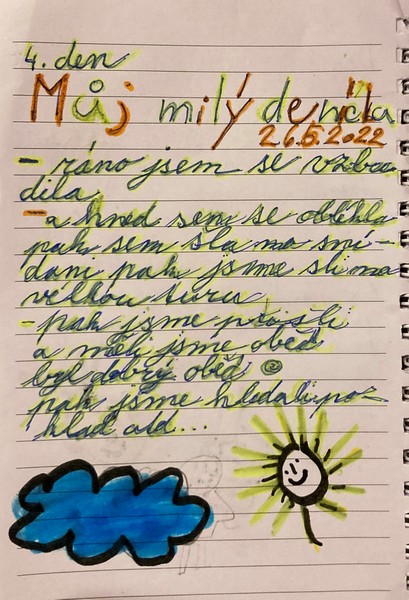 4. den
Můj milý deníčka
26.5.2022
- ráno jsem se vzbu
dila
- a hned sem se oblékla
pak sem šla na sní-
dani pak jsme šli na
velkou turu
- pak jsme přišli
a měli jsme oběd
byl dobrý oběd
pak jsme hledali po-
klad atd...